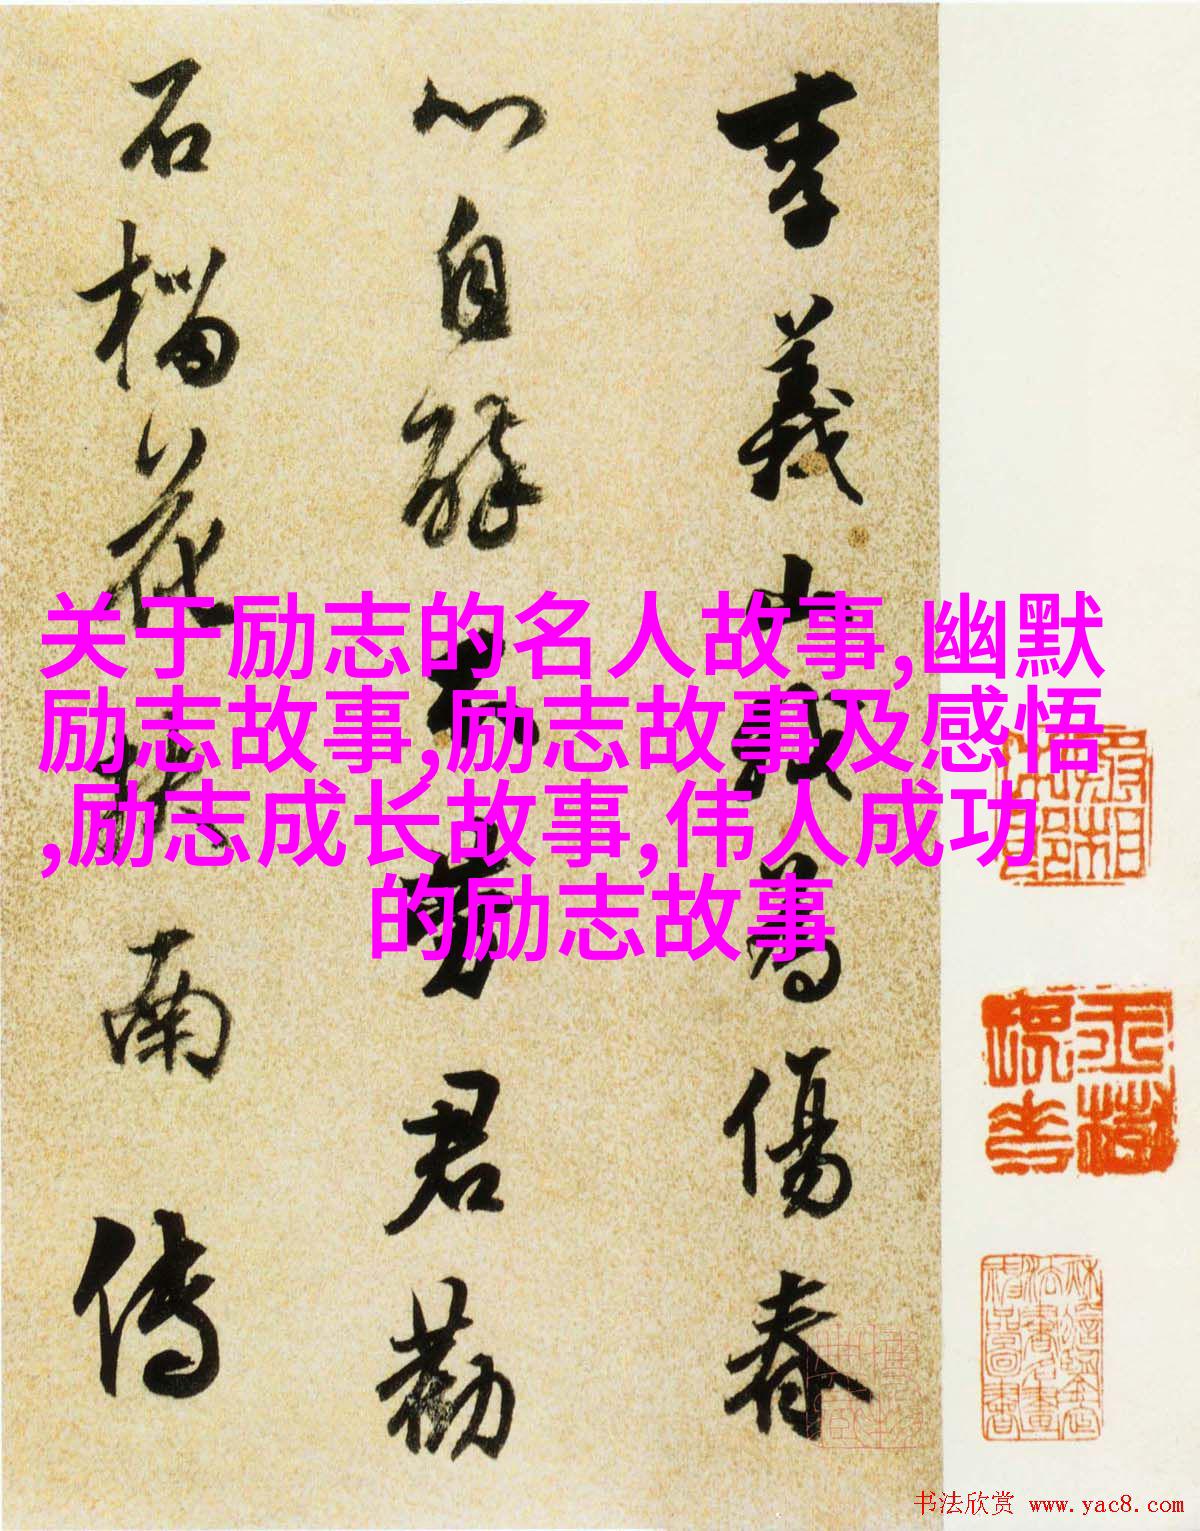 李義山我為傷春
心自醉不勞君勸
石榴花扶南傳
关于励志的名人故事,幽默
励志故事,励志故事及感悟
,励志成长故事,伟人成功
的励志故事
书法欣赏 www.yac8.com